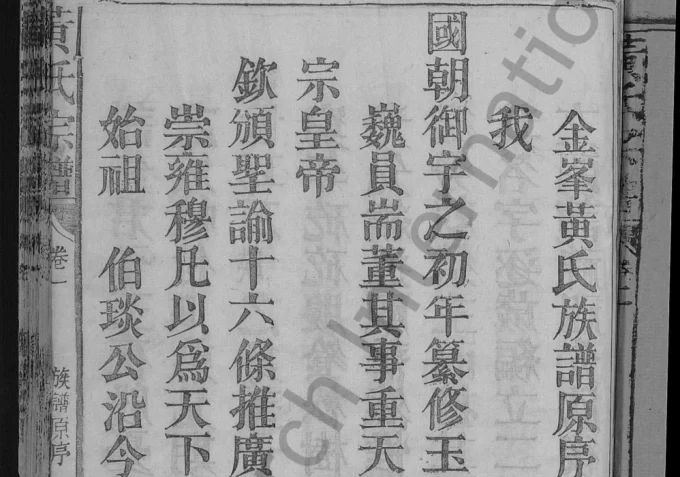 金峯黃氏族譜原序
我
國朝御宇之初年纂修玉
巍員耑董其事重天
宗皇帝
欽頒聖諭十六條推廣
崇雍穆凡以為天下
始祖 伯琰公沿今
黃氏宗譜 卷一 族譜原序